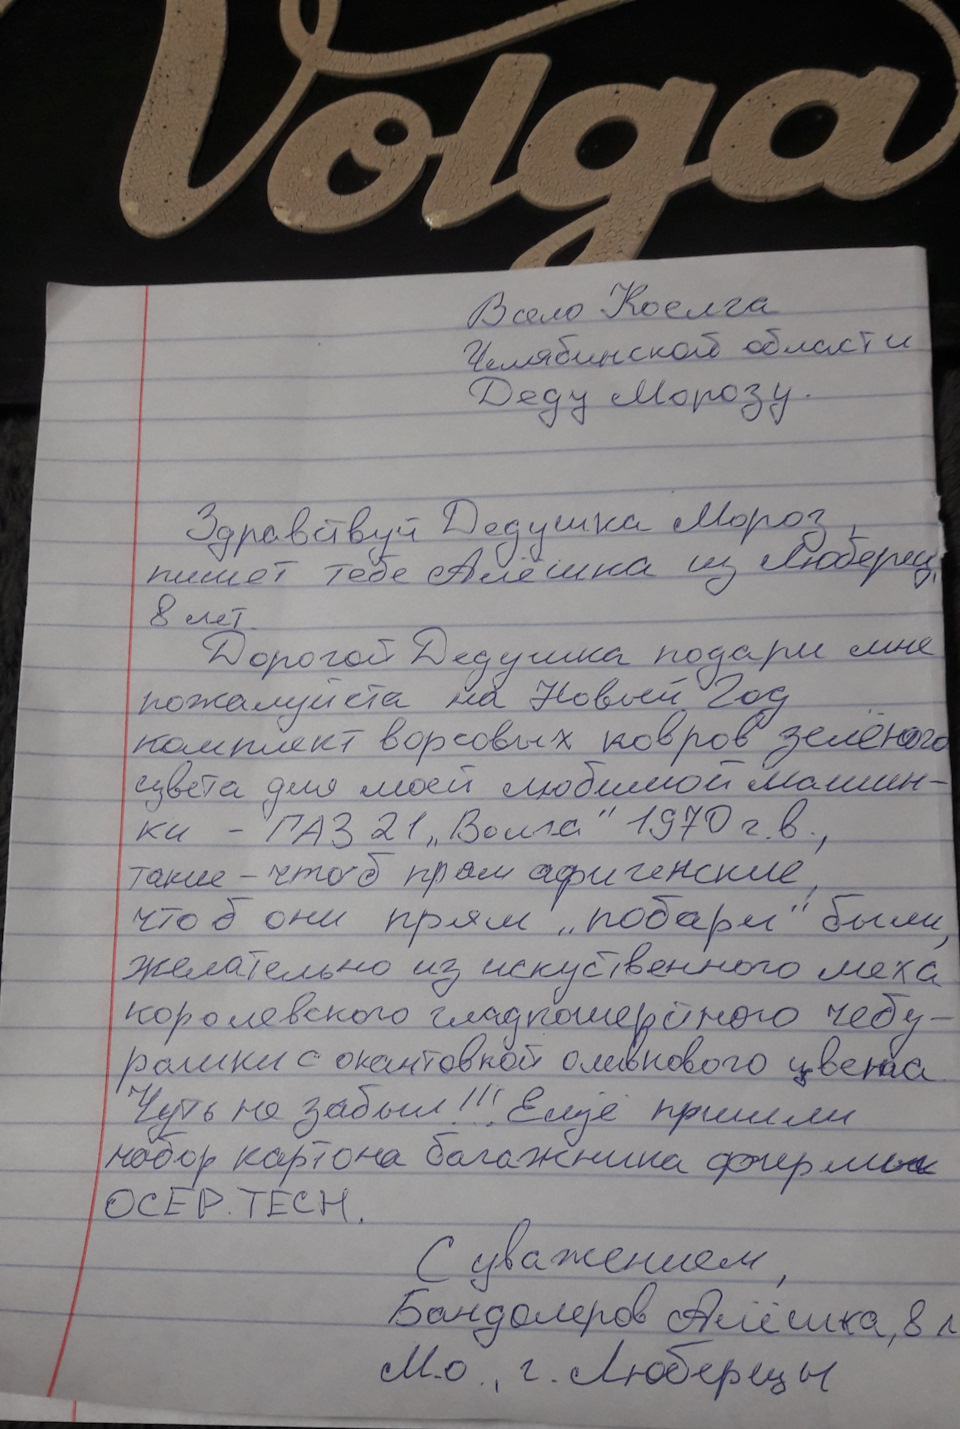 Volga
В село Коелга
Челябинской области
Деду Морозу.
Здравствуй Дедушка Мороз,
пишет тебе Алёшка из Люберец,
8 лет.
Дорогой Дедушка подари мне
пожалуйста на Новый Год
комплект ворсовых ковров зелёного
цвета для моей любимой машин-
ки - ГАЗ 21 „Волга" 1970 г.в.,
такие - чтоб прям афигенские,
чтоб они прям „побары" были,
желательно из искуственного меха
королевского гладкошерстного чебу-
рашки с окантовкой оливкового цвета
Чуть не забыл!!! Ещё пришли
набор картона багажника фирмы
OCEP.TECH.
С уважением,
Бандолеров Алёшка, 8 л
М.о., г. Люберцы